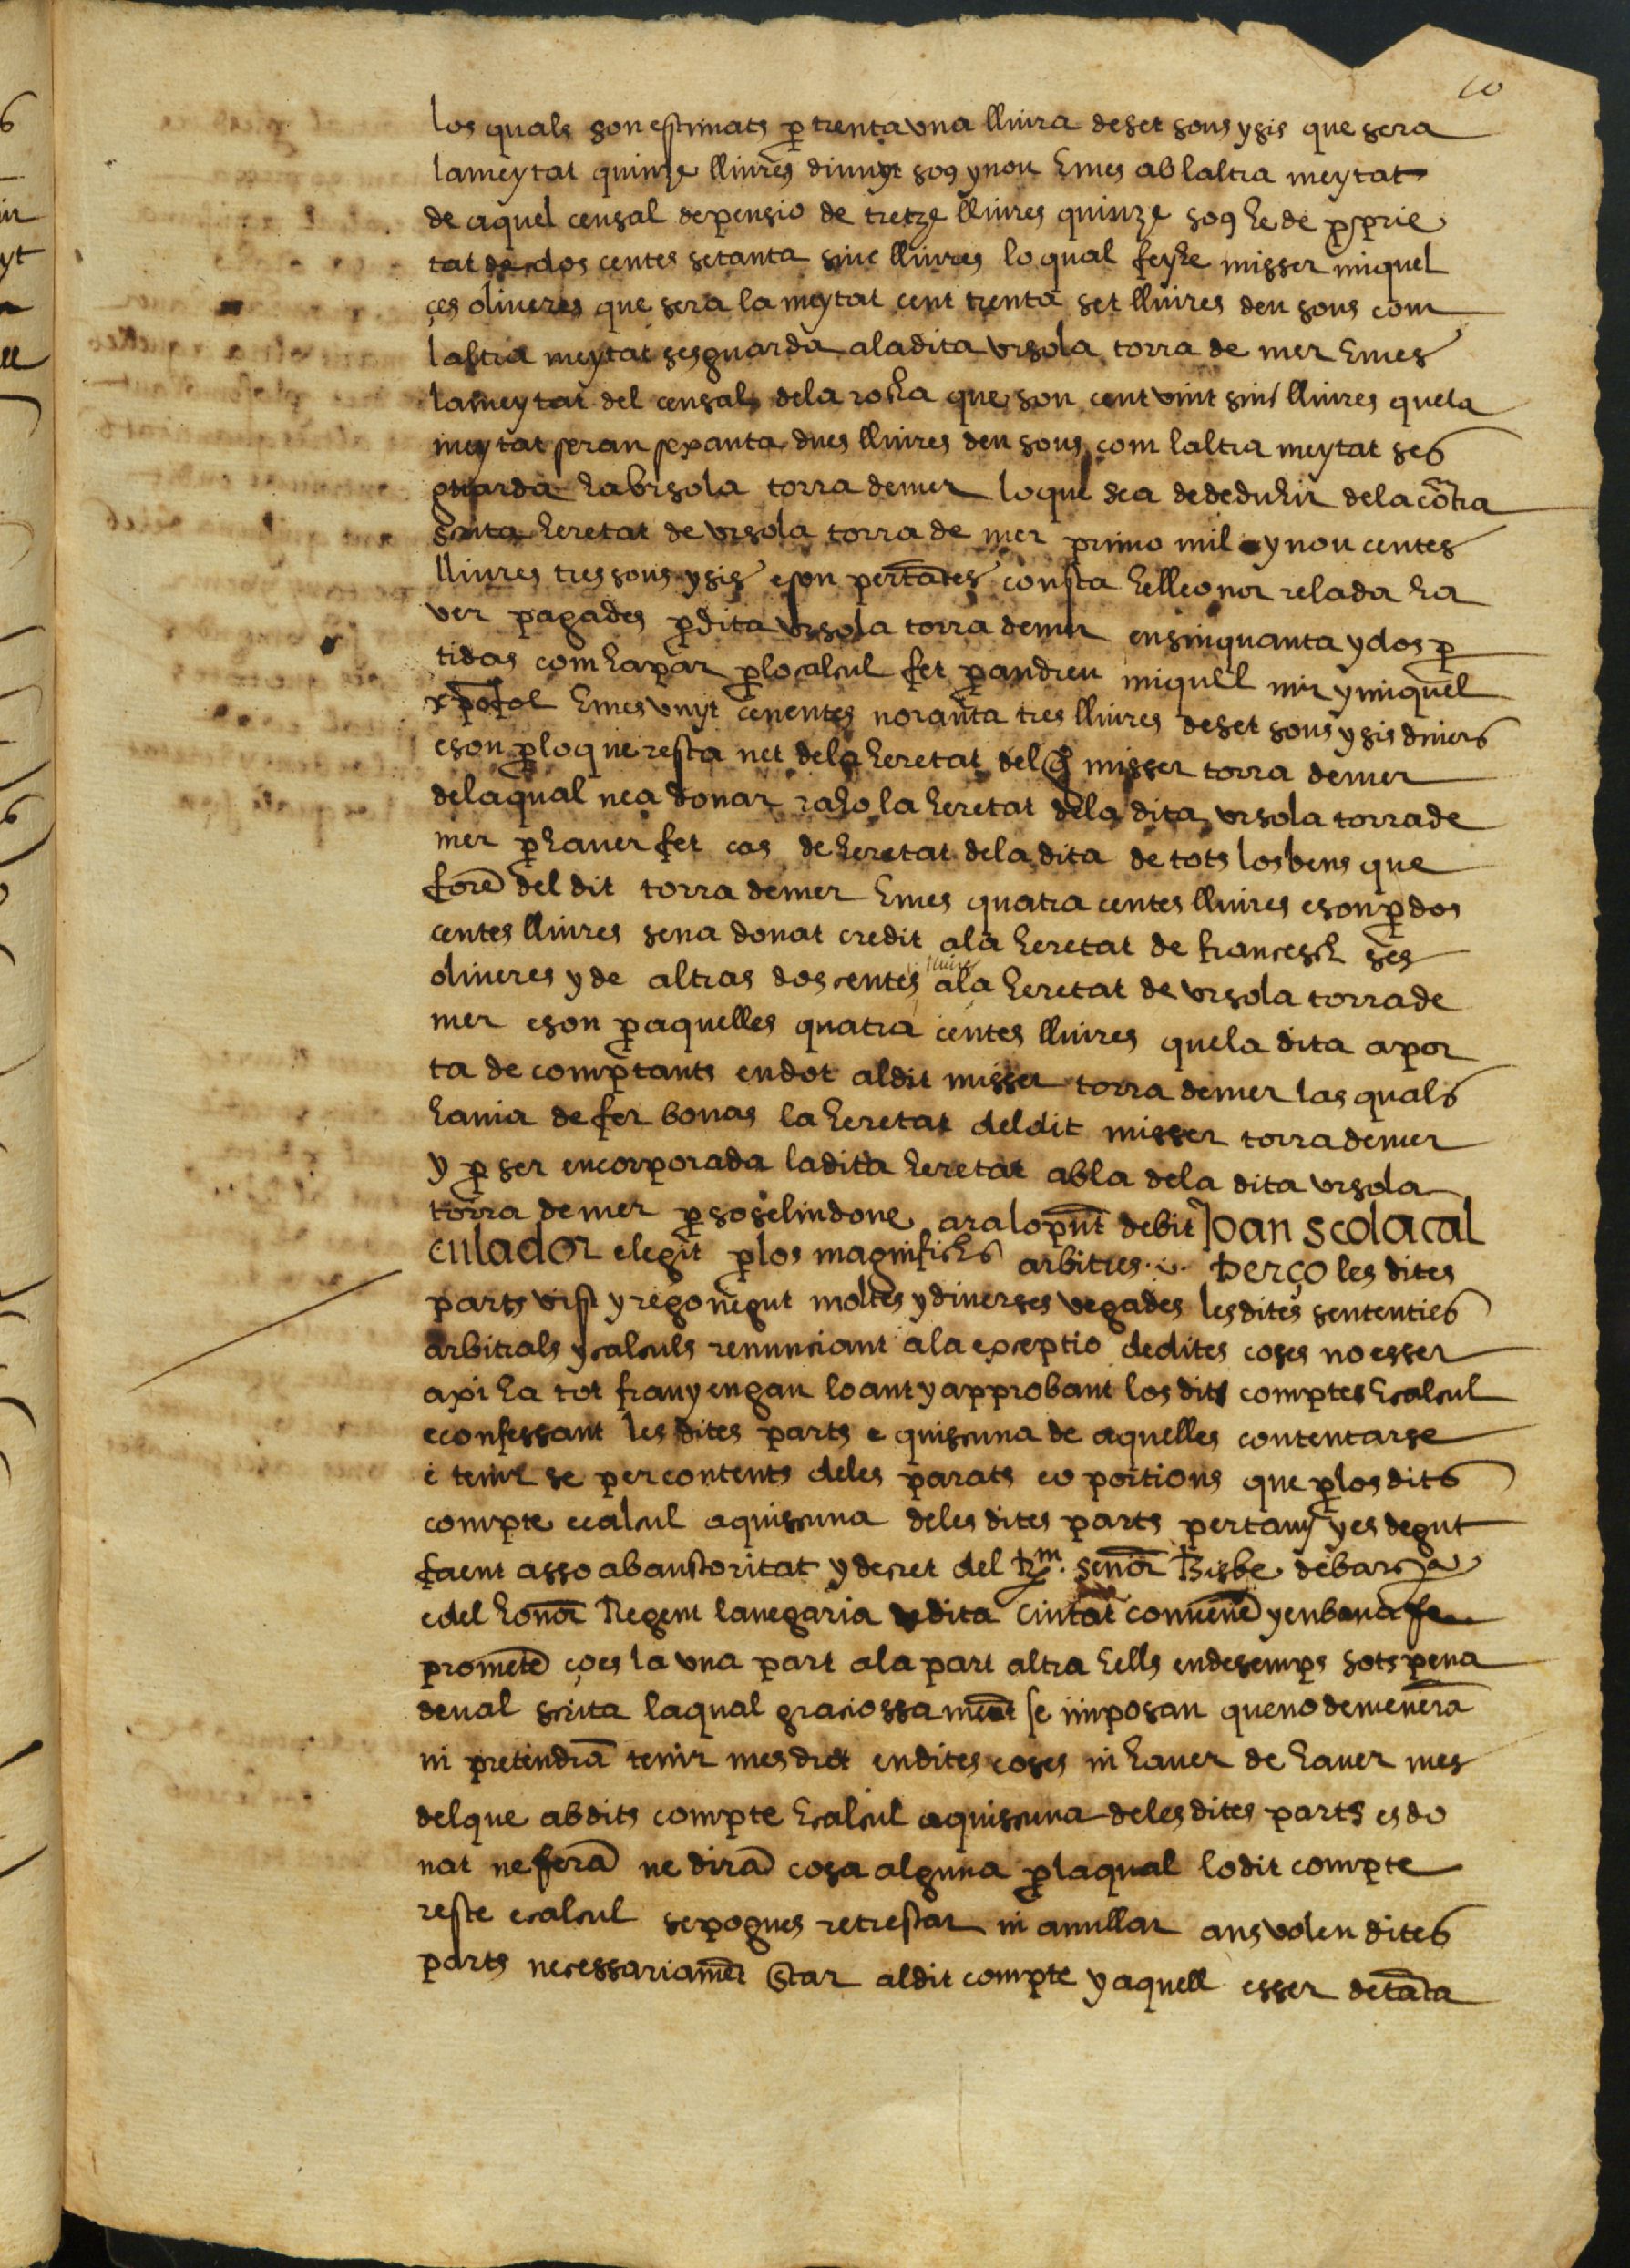 10
los quals son estimats p trenta una lliura deset sous y sis que sera
la meytat quinze lliures divuyt sos y nou E mes ab laltra meytat
de aquel censal de pensio de tretze lliures quinze sos he de pprie
tat de dos centes setanta sinc lliures lo qual feyhe misser miquel
ces oliveres que sera la meytat cent trenta set lliures deu sous com
laltra meytat sesguarda a la dita ursola torra de mer E mes
la meytat del censal de la rocha que son cent vint sinc lliures que la
meytat seran sexanta dues lliures deu sous com laltra meytat ses
guarda ha ursola torra de mer lo que sea de deduhir de la contra
scrita heretat de ursola torra de mer primo mil y nou centes
lliures tres sous y sis e son per tantes consta helleonor relada ha
ver pagades p dita ursola torra de mer en sinquanta y dos p
tidas com hapar p lo calcul fet p andreu miquel mir y miquel
xpofol E mes vuyt centes noranta tres lliures deset sous y sis diners
e son p lo que resta net de la heretat del q misser torra de mer
de la qual nea donar raho la heretat de la dita ursola torra de
mer p haver fet cos de heretat de la dita de tots los bens que
fore del dit torra de mer E mes quatra centes lliures e son p dos
centes lliures sena donat credit a la heretat de francesch ses
oliveres y de altras dos centes lliures a la heretat de ursola torra de
mer e son p aquelles quatra centes lliures que la dita apor
ta de comptants en dot al dit misser torra de mer las quals
havia de fer bonas la heretat del dit misser torra de mer
y p ser encorporada la dita heretat ab la de la dita ursola
torra de mer p so selin done ara lo pnt debit Joan scola cal
culador elegit p los magnifichs arbitres Perço les dites
parts vist y regonegut moltes y diverses vegades les dites sententies
arbitrals y calculs renunciant a la exceptio de dites coses no esser
axi ha tot frau y engan loant y approbant los dits comptes E calcul
e confessant les dites parts e quiscuna de aquelles contentarse
e tenir se per contents de les parats eo portions que p los dits
compte e calcul a quiscuna de les dites parts pertany y es degut
faent asso ab auctoritat y decret del Rm. senor Bisbe de barna
e del honor Regent la vegaria y dita Ciutat convene y en bona fe
promete ço es la una part a la part altra E ells endesemps sots pena
deval scrita la qual graciossament se imposan que no demenera
ni pretendra tenir mes dret en dites coses ni haver de haver mes
del que ab dits compte E calcul a quiscuna de les dites parts es do
nat ne fera ne dira cosa alguna p la qual lo dit compte
reste e calcul se pogues retrestar ni anullar ans volen dites
parts necessariament Star al dit compte y aquell esser de tanta